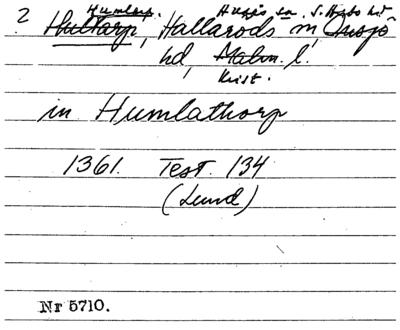 Humlarp. Huggis sn. S. Åsbo hd
? Hultarp, Hallaröds sn, Onsjö
hd, Malm. l.
Krist.
in Humlathorp
1361. Test. 134
(Lund)
Nr 5710.